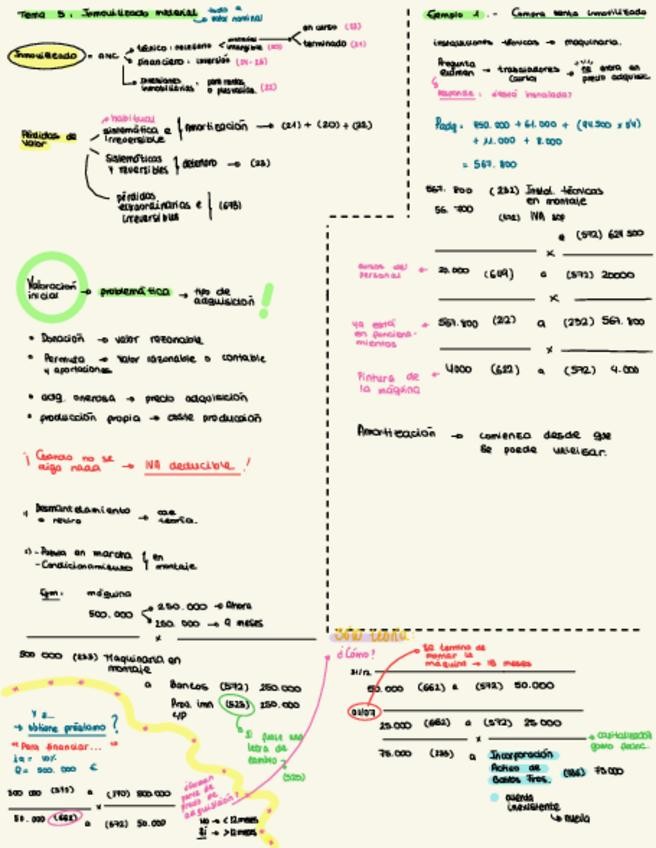 Tema 5: Inmovilizado material
todo a valor nominal
Inmovilizado = ANC
técnico: necesario
material
intangible (20)
en curso (23)
terminado (21)
financiero: inversión (24-25)
inversiones inmobiliarias
para rentas o plusvalías (22)
Pérdidas de valor
habitual
sistemática e irreversible
Amortización → (21) + (20) + (22)
Sistemáticas y reversibles
deterioro → (23)
pérdidas extraordinarias e irreversibles
(678)
Valoración inicial → problemática → tipo de adquisición !
• Donación → valor razonable
• Permuta y aportaciones → valor razonable o contable
• adq. onerosa → precio adquisición
• producción propia → coste producción
¡ Cuando no se diga nada → IVA deducible !
1) Desmantelamiento o retiro →
teoría.
2) - Puesta en marcha
- Condicionamiento
en montaje
Ejm: máquina
500.000
250.000 → Ahora
250.000 → 9 meses
x
500 000 (233) Maquinaria en montaje
a Bancos (572) 250.000
Prov. inm c/p (523) 250.000
Si fuese una letra de cambio →
(525)
Y si...
→ obtiene préstamo?
"Para financiar..."
i = 10%
Q = 500.000 €
500 000 (572) a (170) 500.000
x
50.000 (662) a (572) 50.000
¿forman parte de precio de adquisición?
No → < 12 meses
Sí → > 12 meses
Ejemplo 1.- Compra venta inmovilizado
instalaciones técnicas → maquinaria.
Pregunta examen → trabajadores (curso) → no entra en precio adquisic.
Responde: ¿está instalada?
Padq = 450.000 + 61.000 +
+ 11.000 + 8.000
= 567.800
567.800 (232) Instal. técnicas en montaje
56.700 (472) IVA sop
a (572) 624.500
x
cursos del personal ←
20.000 (649) a (572) 20000
x
ya está en funcionamientos ←
567.800 (212) a (232) 567.800
x
Pintura de la máquina ←
4000 (622) a (572) 4.000
Amortización → comienza desde que se puede utilizar.
Sólo teoría:
¿Cómo?
Se termina de montar la máquina → 18 meses
31/12
50.000 (662) a (572) 50.000
01/07
25.000 (662) a (572) 25.000
x
75.000 (233) a Incorporación Activo de Gastos Fros.
75.000
→ capitalización gasto financ.
cuenta inexistente
→ nueva